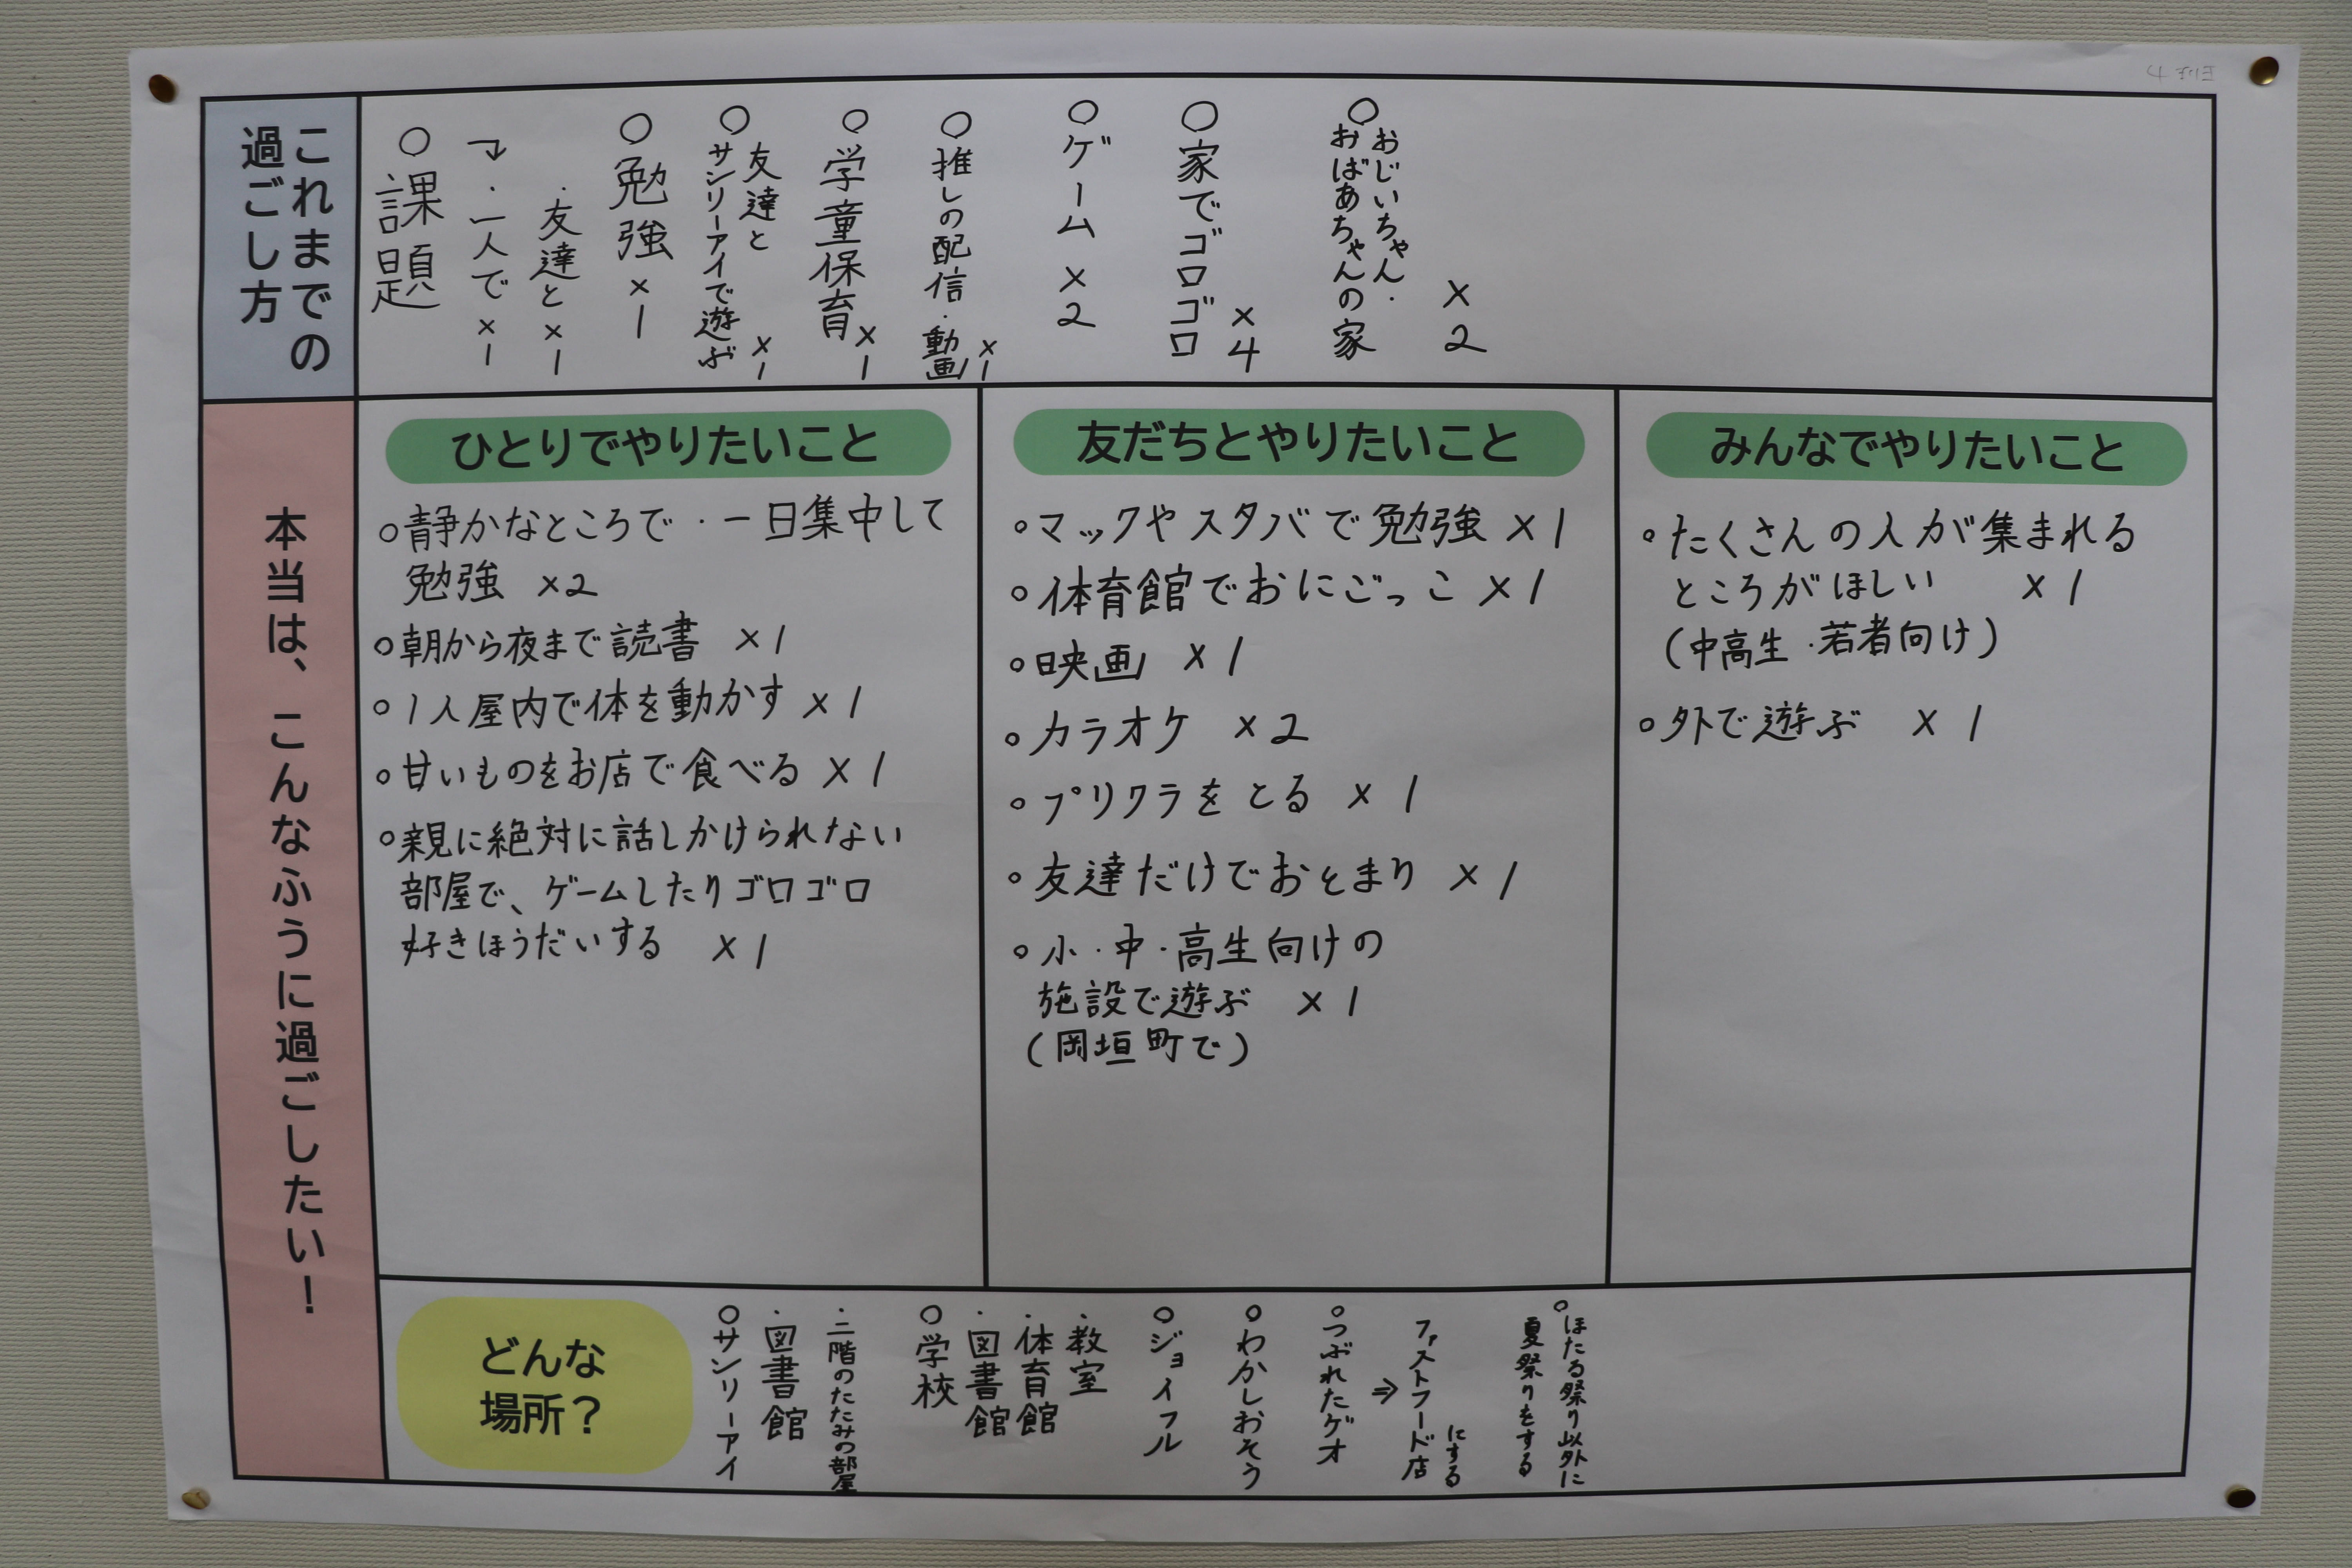 これまでの
過ごし方
○課題
→・一人で×1
・友達と×1
○勉強×1
○友達と
サンリーアイで遊ぶ×1
○学童保育×1
○推しの配信・動画×1
○ゲーム×2
○家でゴロゴロ×4
○おじいちゃん・
おばあちゃんの家×2
本当は、こんなふうに過ごしたい！
ひとりでやりたいこと
○静かなところで・一日集中して
勉強 ×2
○朝から夜まで読書 ×1
○1人屋内で体を動かす ×1
○甘いものをお店で食べる ×1
○親に絶対に話しかけられない
部屋で、ゲームしたりゴロゴロ
好きほうだいする ×1
友だちとやりたいこと
○マックやスタバで勉強 ×1
○体育館でおにごっこ ×1
○映画 ×1
○カラオケ ×2
○プリクラをとる ×1
○友達だけでおとまり ×1
○小・中・高生向けの
施設で遊ぶ ×1
(岡垣町で)
みんなでやりたいこと
○たくさんの人が集まれる
ところがほしい ×1
(中高生・若者向け)
○外で遊ぶ ×1
どんな
場所？
○サンリーアイ
・図書館
・二階のたたみの部屋
○学校
・図書館
・体育館
・教室
○ジョイフル
○わかしおそう
○つぶれたゲオ
⇒ファストフード店
にする
○ほたる祭り以外に
夏祭りをする